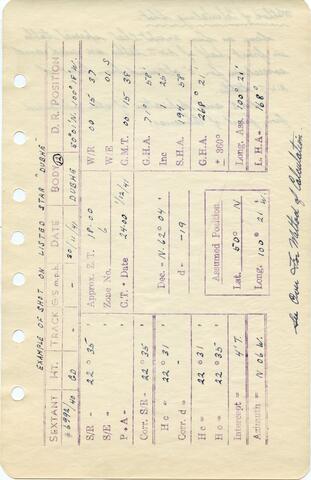 EXAMPLE OF SHOT ON LISTED STAR "DUBHE"
SEXTANT HT. TRACK G.S m.p.h. DATE BODY D. R. POSITION
#6992/40 GD - - 30/11/41 DUBHE 50° 01' N. 100° 18' W.
S/R - 22° 35' Approx. Z.T. 18-00 W/R 00 15 37
S/E - " Zone No. 6 W/E 01 S
P + A - " G.T. + Date 2400 1/12/41 G.M.T. 00 15 38
Corr. S/R - 22° 35' G.H.A. 71° 58'
H c = 22° 31' Dec - N. 62° 04' Inc 1 25'
Corr. d = - d = -19 S.H.A. 194 58'
H c = 22° 31' G.H.A. 268° 21'
H o = 22° 35' Assumed Position + 360°
Intercept = 4'T. Lat. 50° N Long. Ass. 100° 21'
Azimuth = N 06 W. Long. 100° 21' W. L. H. A= 168°
See Over For Method of Calculation